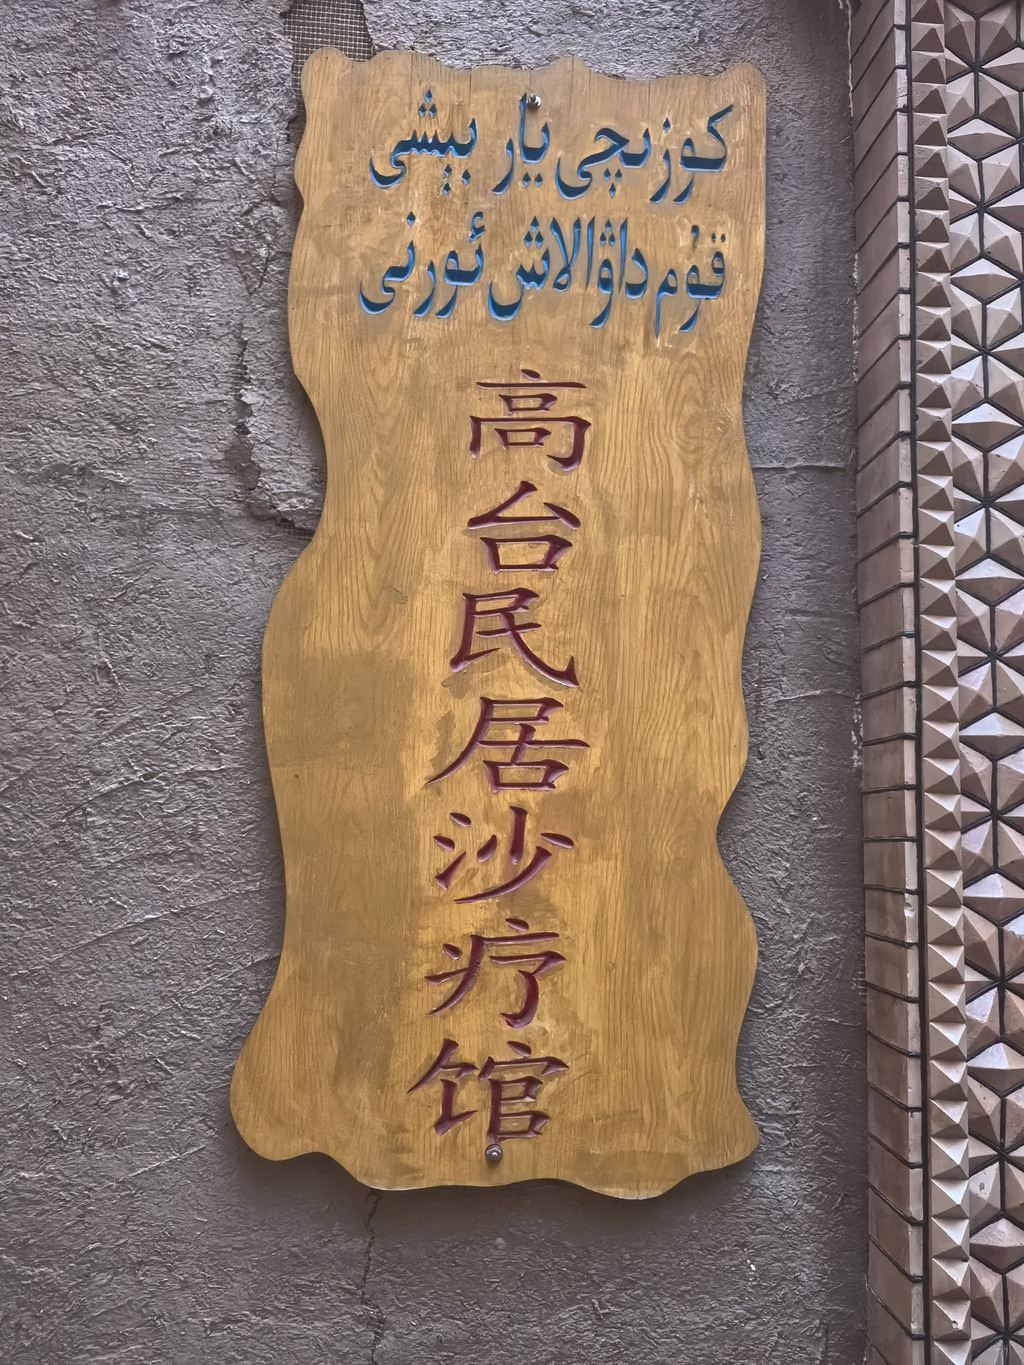 كوزىچى يار بېشى
قۇم داۋالاش ئورنى
高台民居沙疗馆